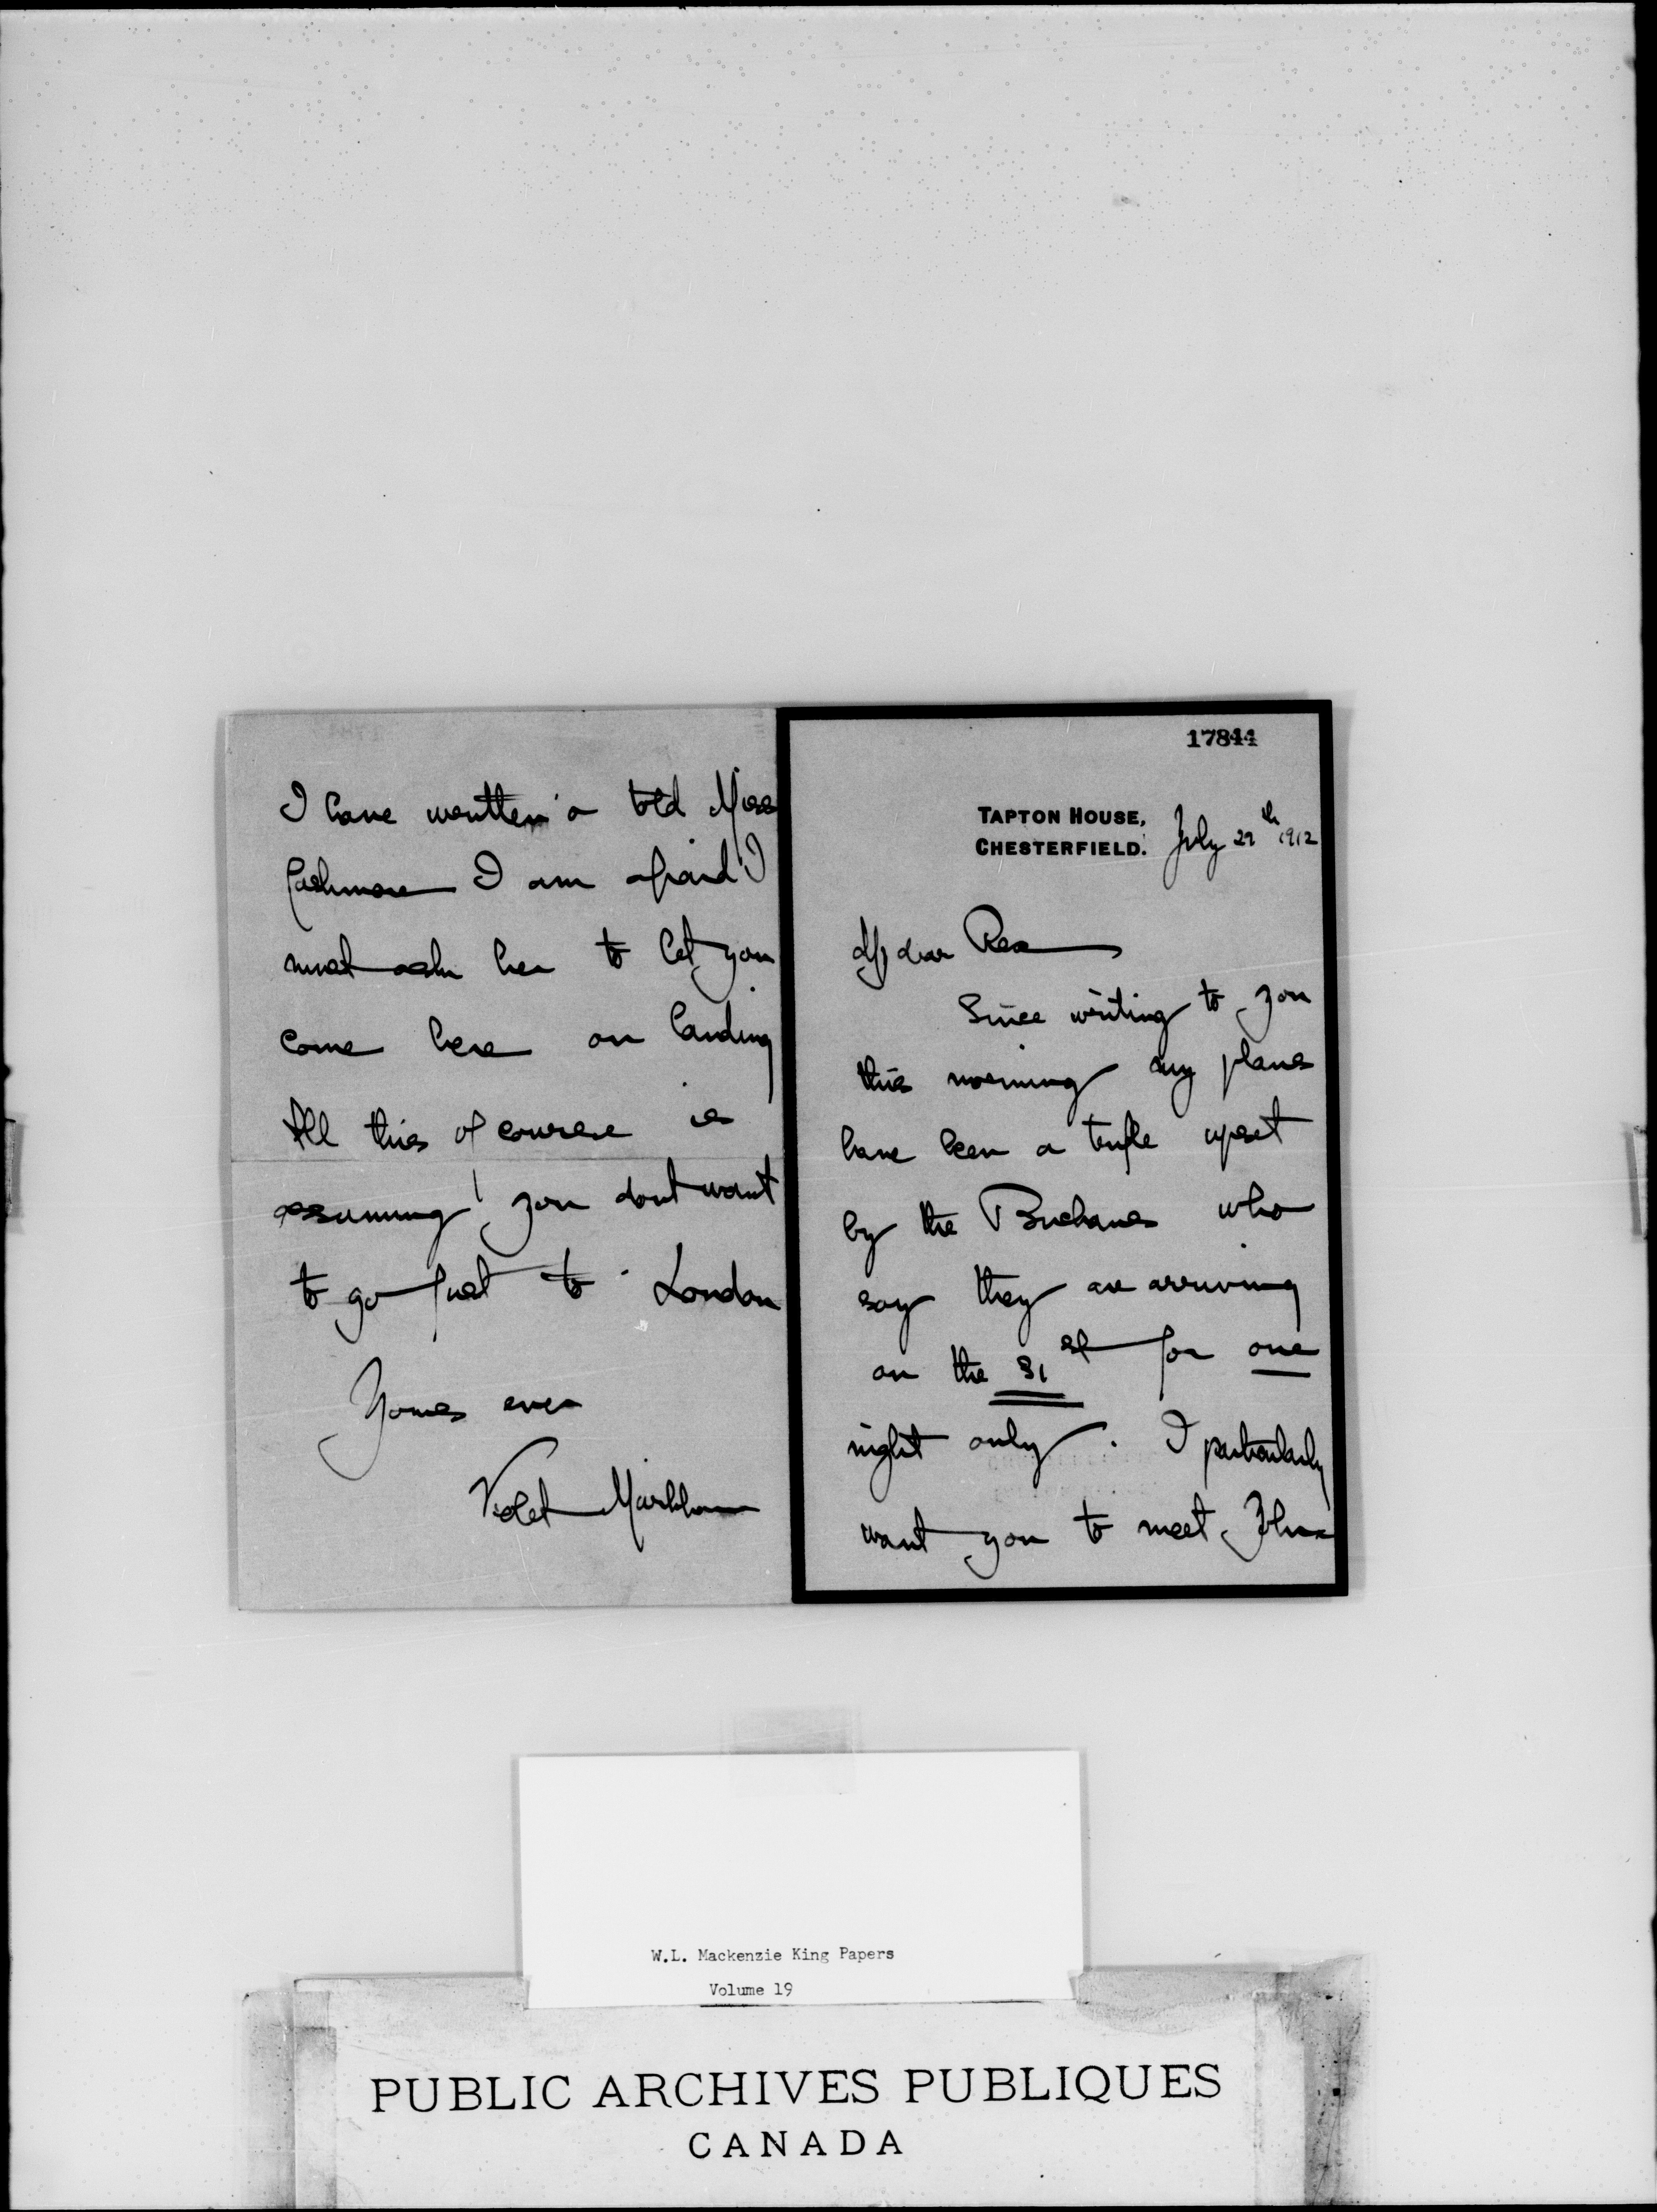 17844
TAPTON HOUSE,
CHESTERFIELD.
July 29th 1912
My dear Rex
Since writing to you
this morning my plans
have been a trifle upset
by the Buchans who
say they are arriving
on the 31st for one
night only. I particularly
want you to meet John
I have written & told Miss
Cashmore I am afraid I
must ask her to let you
come here on landing
All this of course is
assuming you dont want
to go first to London
Yours ever
Violet Markham
W.L. Mackenzie King Papers
Volume 19
PUBLIC ARCHIVES PUBLIQUES
CANADA